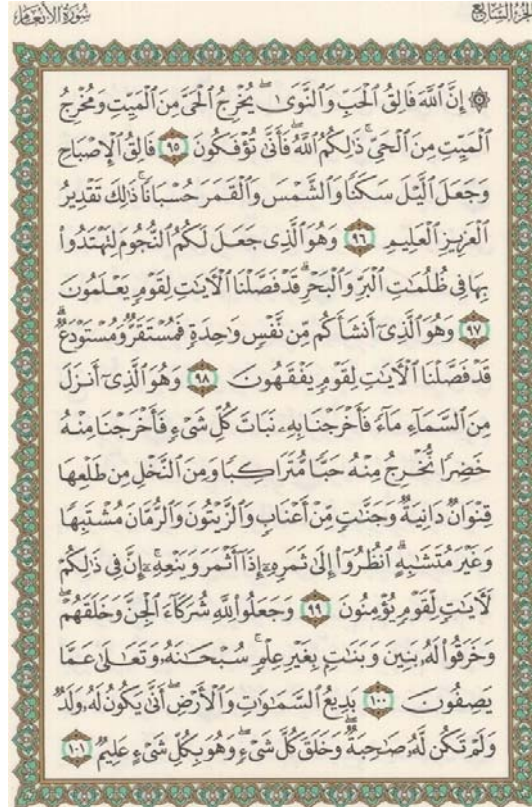 الجزء السابع
سورة الأنعام
۞ إِنَّ ٱللَّهَ فَالِقُ ٱلْحَبِّ وَٱلنَّوَىٰ ۖ يُخْرِجُ ٱلْحَىَّ مِنَ ٱلْمَيِّتِ وَمُخْرِجُ
ٱلْمَيِّتِ مِنَ ٱلْحَىِّ ۚ ذَٰلِكُمُ ٱللَّهُ ۖ فَأَنَّىٰ تُؤْفَكُونَ ٩٥ فَالِقُ ٱلْإِصْبَاحِ
وَجَعَلَ ٱلَّيْلَ سَكَنًا وَٱلشَّمْسَ وَٱلْقَمَرَ حُسْبَانًا ۚ ذَٰلِكَ تَقْدِيرُ
ٱلْعَزِيزِ ٱلْعَلِيمِ ٩٦ وَهُوَ ٱلَّذِى جَعَلَ لَكُمُ ٱلنُّجُومَ لِتَهْتَدُوا۟
بِهَا فِى ظُلُمَٰتِ ٱلْبَرِّ وَٱلْبَحْرِ ۗ قَدْ فَصَّلْنَا ٱلْءَايَٰتِ لِقَوْمٍ يَعْلَمُونَ
٩٧ وَهُوَ ٱلَّذِىٓ أَنشَأَكُم مِّن نَّفْسٍ وَٰحِدَةٍ فَمُسْتَقَرٌّ وَمُسْتَوْدَعٌ ۗ
قَدْ فَصَّلْنَا ٱلْءَايَٰتِ لِقَوْمٍ يَفْقَهُونَ ٩٨ وَهُوَ ٱلَّذِىٓ أَنزَلَ
مِنَ ٱلسَّمَآءِ مَآءً فَأَخْرَجْنَا بِهِۦ نَبَاتَ كُلِّ شَىْءٍ فَأَخْرَجْنَا مِنْهُ
خَضِرًا نُّخْرِجُ مِنْهُ حَبًّا مُّتَرَاكِبًا وَمِنَ ٱلنَّخْلِ مِن طَلْعِهَا
قِنْوَانٌ دَانِيَةٌ وَجَنَّٰتٍ مِّنْ أَعْنَابٍ وَٱلزَّيْتُونَ وَٱلرُّمَّانَ مُشْتَبِهًا
وَغَيْرَ مُتَشَٰبِهٍ ۗ ٱنظُرُوٓا۟ إِلَىٰ ثَمَرِهِۦٓ إِذَآ أَثْمَرَ وَيَنْعِهِۦٓ ۚ إِنَّ فِى ذَٰلِكُمْ
لَءَايَٰتٍ لِّقَوْمٍ يُؤْمِنُونَ ٩٩ وَجَعَلُوا۟ لِلَّهِ شُرَكَآءَ ٱلْجِنَّ وَخَلَقَهُمْ ۖ
وَخَرَقُوا۟ لَهُۥ بَنِينَ وَبَنَٰتٍۭ بِغَيْرِ عِلْمٍ ۚ سُبْحَٰنَهُۥ وَتَعَٰلَىٰ عَمَّا
يَصِفُونَ ١٠٠ بَدِيعُ ٱلسَّمَٰوَٰتِ وَٱلْأَرْضِ ۖ أَنَّىٰ يَكُونُ لَهُۥ وَلَدٌ
وَلَمْ تَكُن لَّهُۥ صَٰحِبَةٌ ۖ وَخَلَقَ كُلَّ شَىْءٍ ۖ وَهُوَ بِكُلِّ شَىْءٍ عَلِيمٌ ١٠١